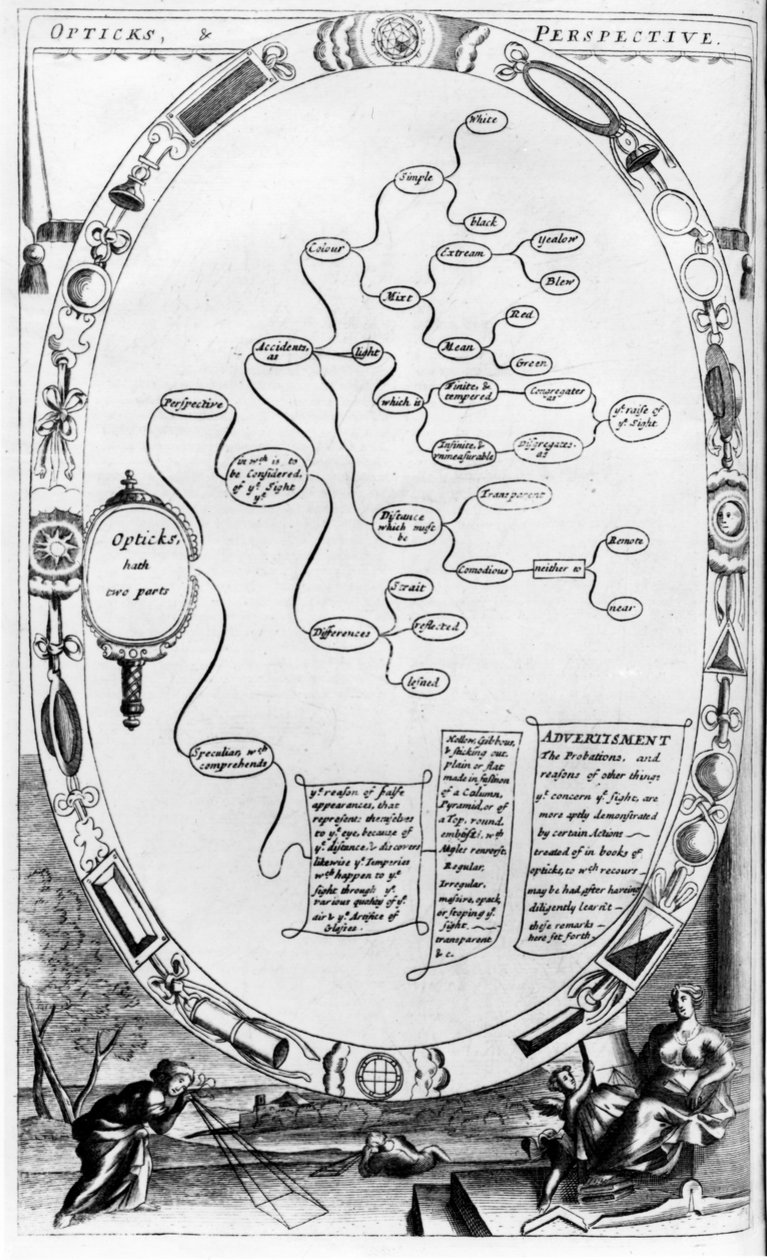 OPTICKS, &
PERSPECTIVE.
Opticks,
hath
two parts
Perspective
in wch is to
be Considered,
of ye Sight
ye
Accidents,
as
Colour
Simple
White
black
Mixt
Extream
Yealow
Blew
Mean
Red
Green
light
which is
Finite, &
tempered
Congregates
as
Infinite, &
vnmeasurable
Disgregates,
as
ye raise of
ye Sight
Distance
which must
be
Transparent
Comodious
neither to
Remote
near
Differences
Strait
reflected
lesned
Specular, wch
comprehends
ye reason of false
appearances, that
represents themselves
to ye eye, because of
ye distance, & discovers
likewise ye Temperies
wch happen to ye
sight through ye
various quality of ye
air & ye Artifice of
Glasses.
Hollow, Gibbous,
& sticking out,
plain or flat
made in fashion
of a Column,
Pyramid, or of
a Top, round,
embosst, wth
Angles renverst,
Regular,
Irregular,
massive, opack,
or stoping ye
sight.
transparent
& c.
ADVERTISMENT
The Probations, and
reasons of other things
ye concern ye sight, are
more aptly demonstrated
by certain Actions
treated of in books of
opticks, to wch recours
may be had, after haveing
diligently learn't
these remarks
here set forth.